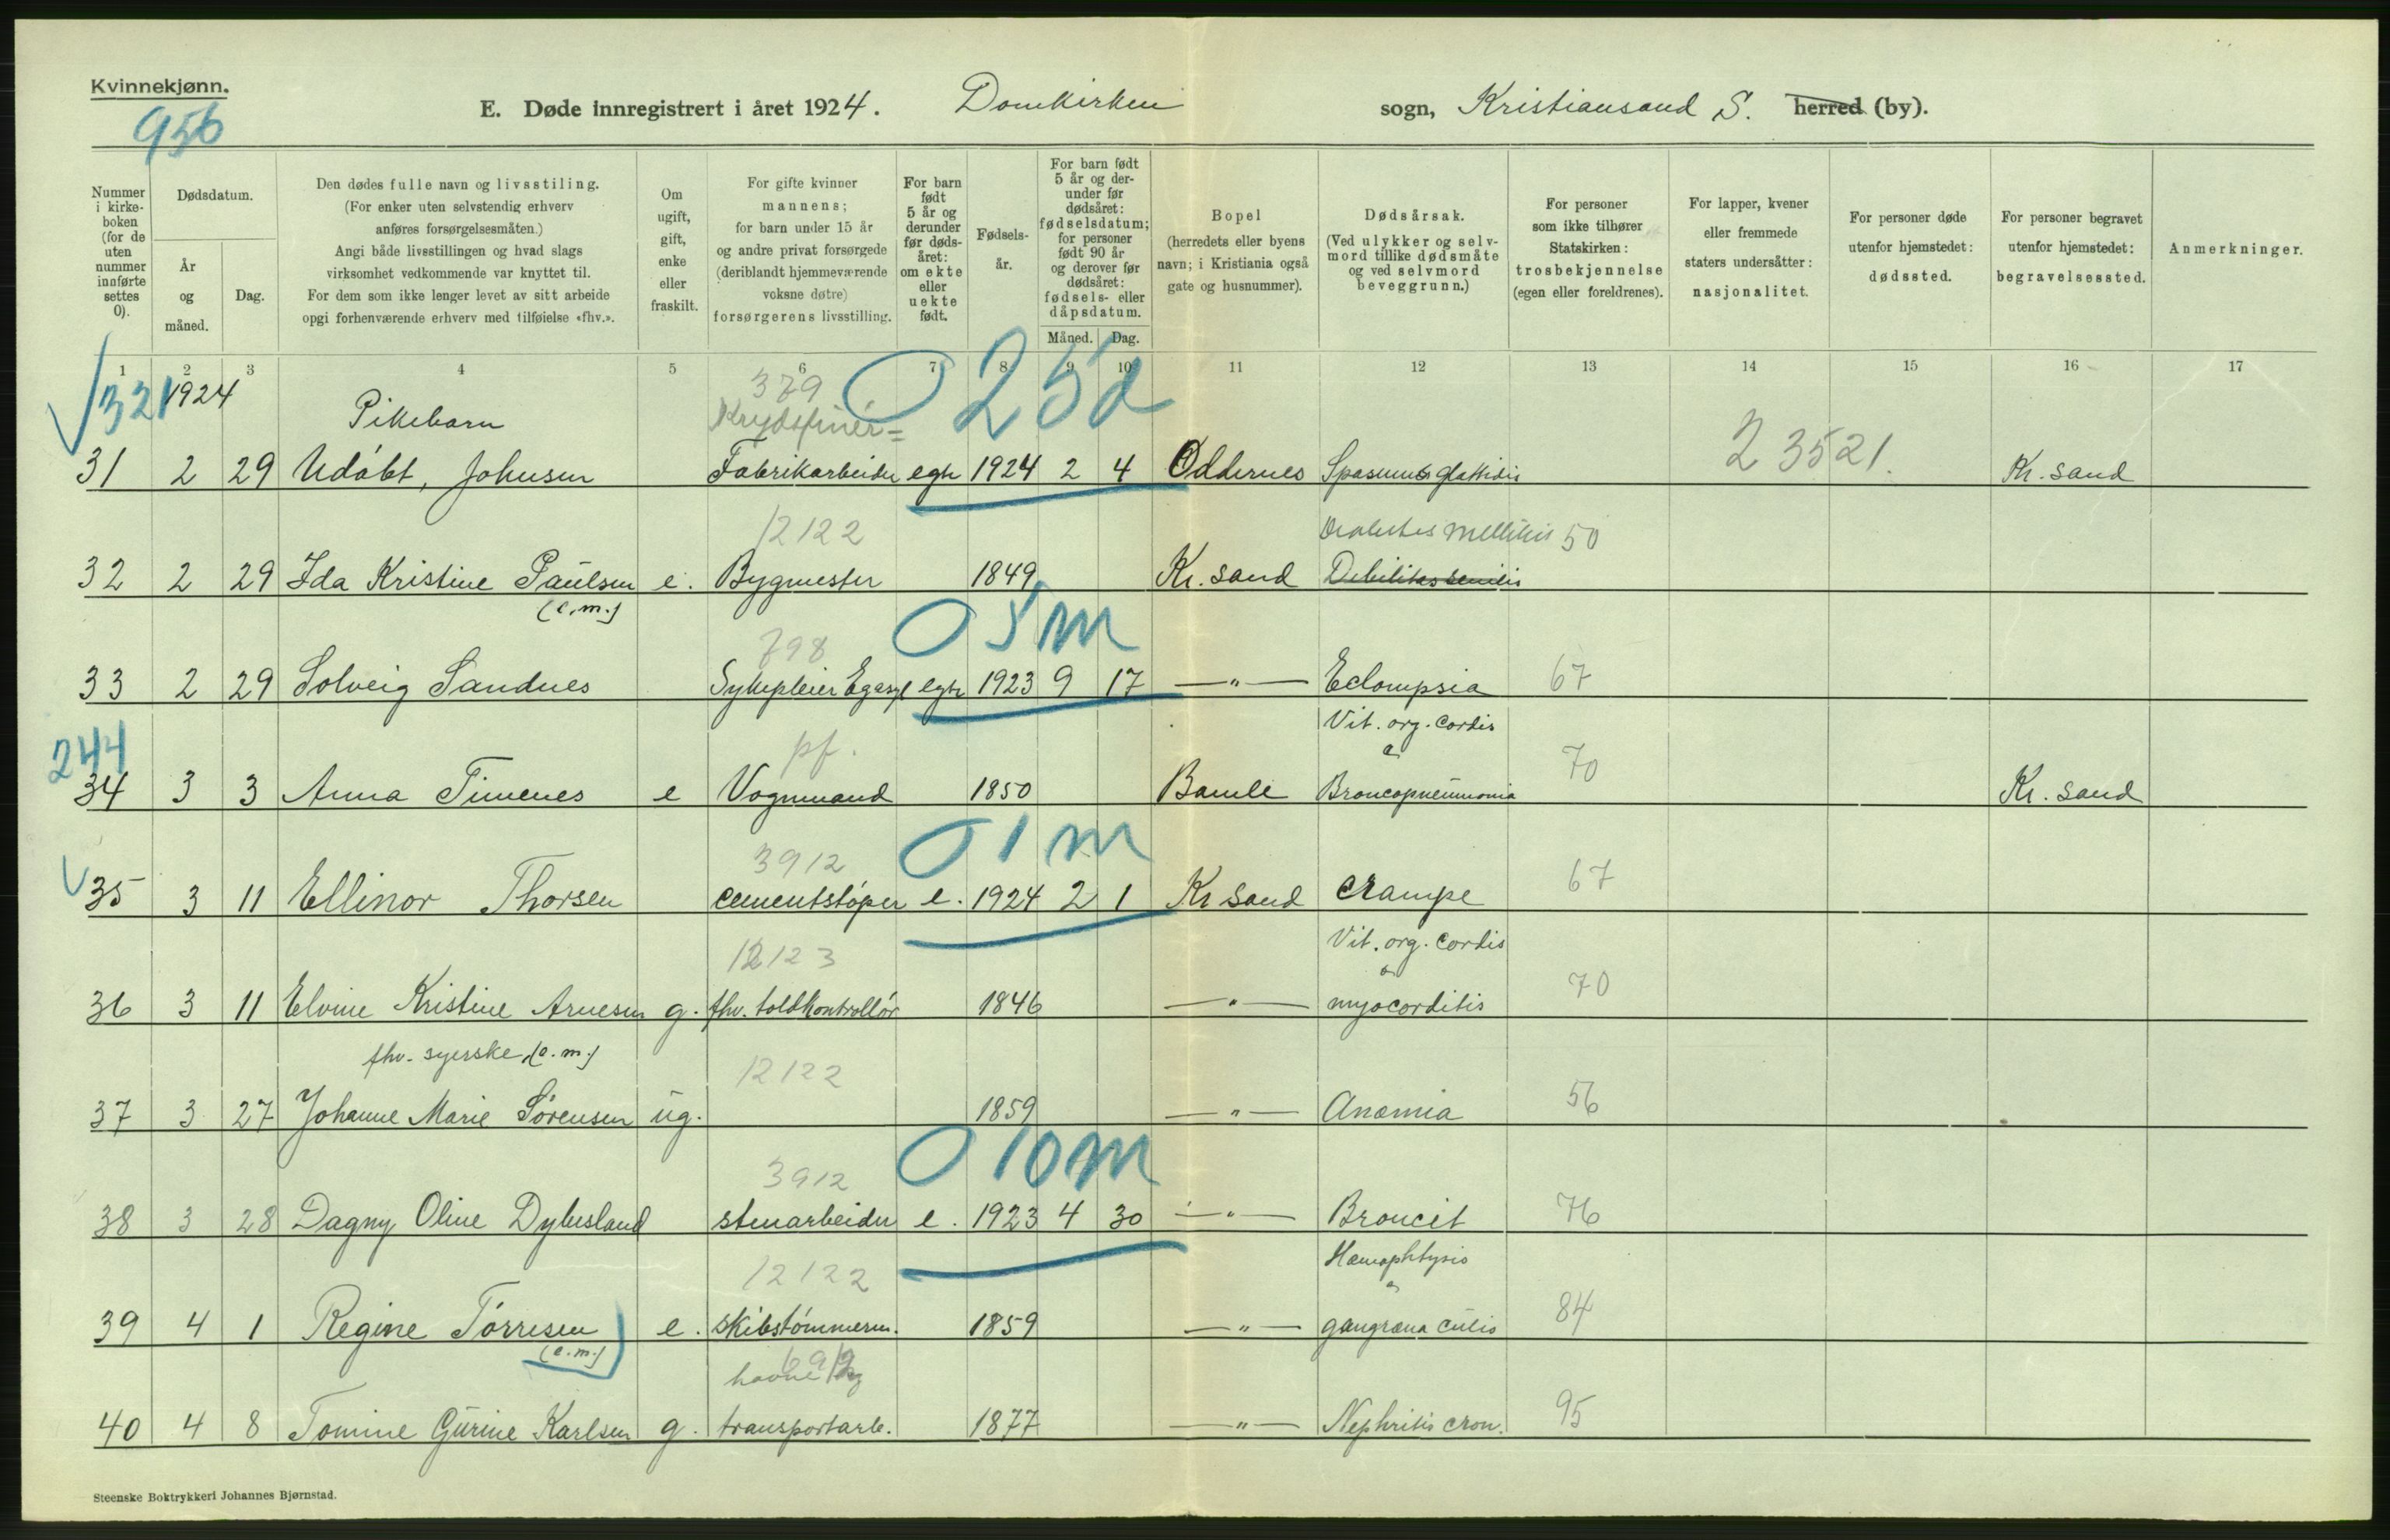 Kvinnekjønn.
956
E. Døde innregistrert i året 1924. Domkirken sogn, Kristiansand S. herred (by).
Nummer i kirke-boken (for de uten nummer innførte settes 0).
Dødsdatum.
År og måned.
Dag.
Den dødes fulle navn og livsstiling.
(For enker uten selvstendig erhverv
anføres forsørgelsesmåten.)
Angi både livsstillingen og hvad slags
virksomhet vedkommende var knyttet til.
For dem som ikke lenger levet av sitt arbeide
opgi forhenværende erhverv med tilføielse «fhv.».
Om ugift, gift, enke eller fraskilt.
For gifte kvinner
mannens;
for barn under 15 år
og andre privat forsørgede
(deriblandt hjemmeværende
voksne døtre)
forsørgerens livsstilling.
For barn født 5 år og derunder før døds-året: om ekte eller uekte født.
Fødsels-år.
For barn født 5 år og der-under før dødsåret: fødselsdatum; for personer født 90 år og derover før dødsåret: fødsels- eller dåpsdatum.
Måned. Dag.
Bopel
(herredets eller byens
navn; i Kristiania også
gate og husnummer).
Dødsårsak.
(Ved ulykker og selv-
mord tillike dødsmåte
og ved selvmord
beveggrunn.)
For personer
som ikke tilhører
Statskirken:
trosbekjennelse
(egen eller foreldrenes).
For lapper, kvener
eller fremmede
staters undersåtter:
nasjonalitet.
For personer døde
utenfor hjemstedet:
dødssted.
For personer begravet
utenfor hjemstedet:
begravelsessted.
Anmerkninger.
1 2 3 4 5 6 7 8 9 10 11 12 13 14 15 16 17
321 1924 379 0 25d
Pikebarn Krydsfinér=
31 2 29 Udøbt, Johnsen Fabrikarbeider egte 1924 2 4 Oddernes Spasmus glottidis 23521. Kr. sand
12122 Diabetes mellitus 50
32 2 29 Ida Kristine Paulsen e. Bygmester 1849 Kr. sand Debilitas senilis
(e.m.)
798 0 5m
33 2 29 Solveig Sandnes Sykepleier Egasyl egte 1923 9 17 —"— Eclampsia 67
Vit. org. cordis
244 pf. a
34 3 3 Anna Timenes e Vognmand 1850 Bamle Broncopneumonia 70 Kr. sand
3912 0 1m
35 3 11 Ellinor Thorsen cementstøper e. 1924 2 1 Kr sand crampe 67
Vit. org. cordis
12123
36 3 11 Elvine Kristine Arnesen g. fhv. toldkontrollør 1846 —"— myocorditis 70
fhv. syerske (e.m.) 12122
37 3 27 Johanne Marie Sörensen ug. 1859 —"— Anæmia 56
3912 0 10m
38 3 28 Dagny Oline Dybesland stenarbeider e. 1923 4 30 —"— Broncit 76
12122 Hæmophtysis
39 4 1 Regine Tórresen e. skibstömmerm. 1859 —"— gangræna cutis 84
(e.m.)
havne
40 4 8 Tomine Gurine Karlsen g. transportarb. 1877 —"— Nephritis cron. 95
Steenske Boktrykkeri Johannes Bjørnstad.